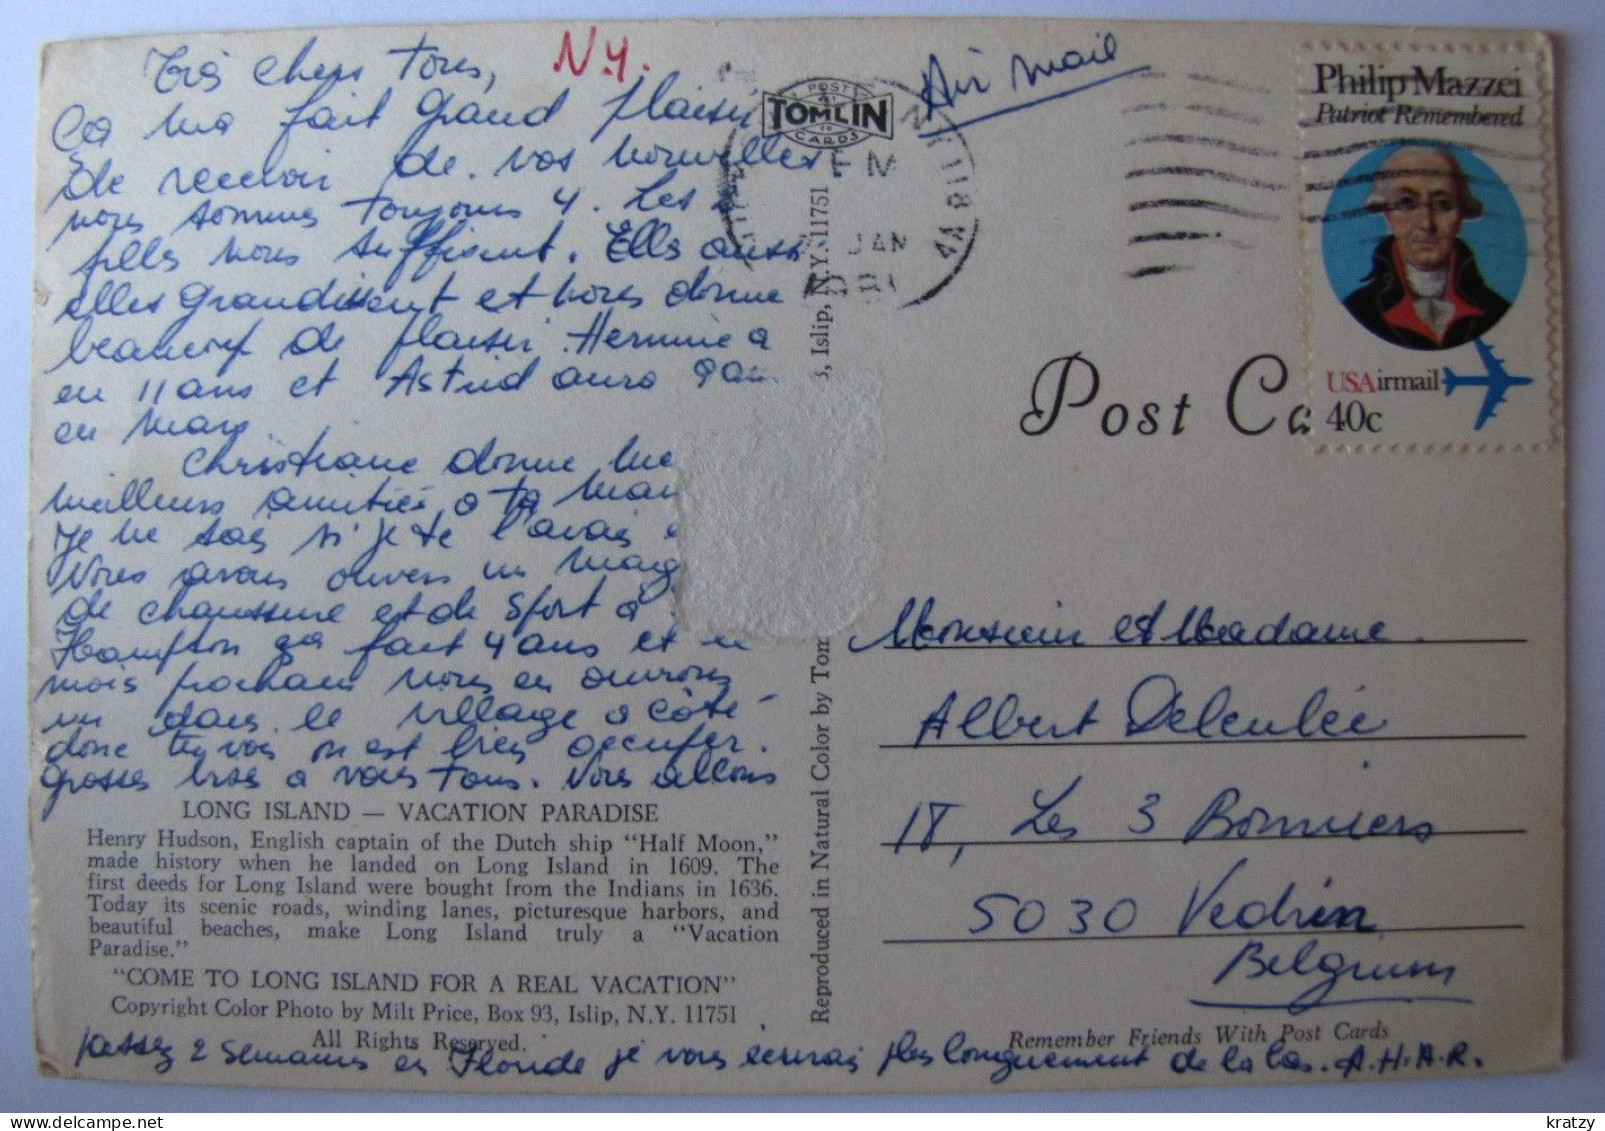 Très chers tous, N.Y.
Ca ma fait grand plaisir
de recevoir de vos nouvelles
nous sommes toujours 4. Les
filles nous suffisent. Elles aussi
elles grandissent et nous donne
beaucoup de plaisir. Hermine a
eu 11 ans et Astrid aura 9 an
en mars
Christiane donne
meilleurs amitiés a ta
Je ne sais si je te l'avais
Nous avons ouvers un mag
de chaussure et de sport a
Hampton ça fait 4 ans et le
mois prochain nous en ouvrons
un dans le village a côté
donc tu vois on est bien occuper.
grosses bises a vous tous. Nous allons
LONG ISLAND — VACATION PARADISE
Henry Hudson, English captain of the Dutch ship "Half Moon,"
made history when he landed on Long Island in 1609. The
first deeds for Long Island were bought from the Indians in 1636.
Today its scenic roads, winding lanes, picturesque harbors, and
beautiful beaches, make Long Island truly a "Vacation
Paradise."
"COME TO LONG ISLAND FOR A REAL VACATION"
Copyright Color Photo by Milt Price, Box 93, Islip, N.Y. 11751
All Rights Reserved.
passez 2 semaines en Floride je vous écrirai plus longuement de la bas. A.H.A.R.
POST
TOMLIN
CARDS
PM
JAN
Reproduced in Natural Color by Tom
3, Islip, N.Y. 11751
Air Mail
Philip Mazzei
Patriot Remembered
USAirmail
40c
Post Ca
Monsieur et Madame
Albert Deleulée
18, Les 3 Bonniers
5030 Vedrin
Belgium
Remember Friends With Post Cards
kratzy